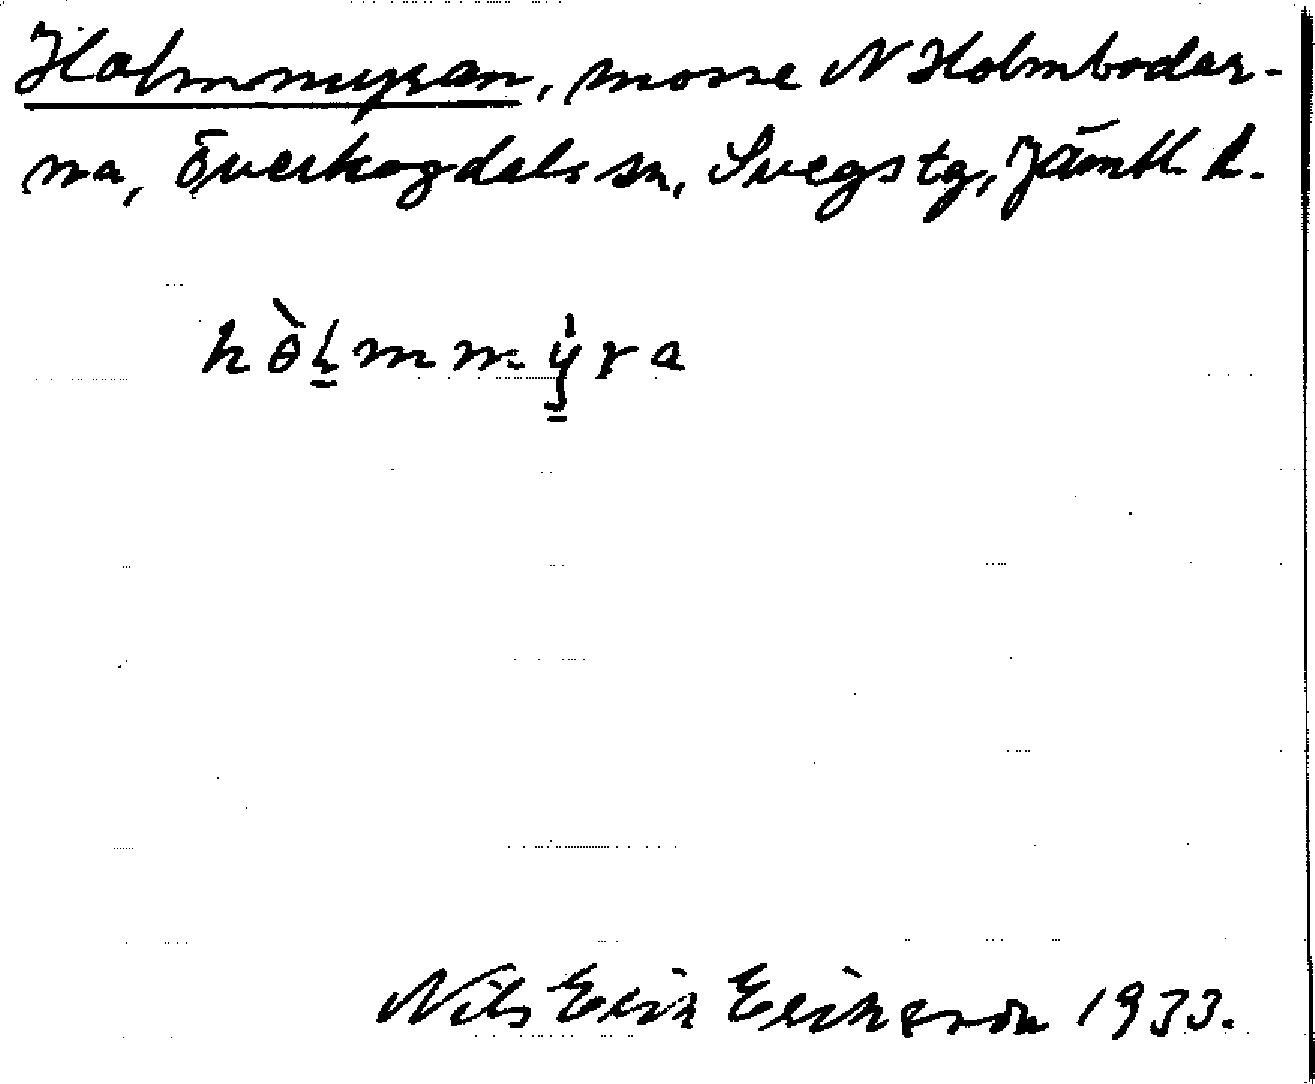 Holmmyran, mosse N Holmbodar-
na, Överhogdals sn, Svegs tg, Jämtl. l.
hòḷmmy̠ra
Nils Erik Eriksson 1933.